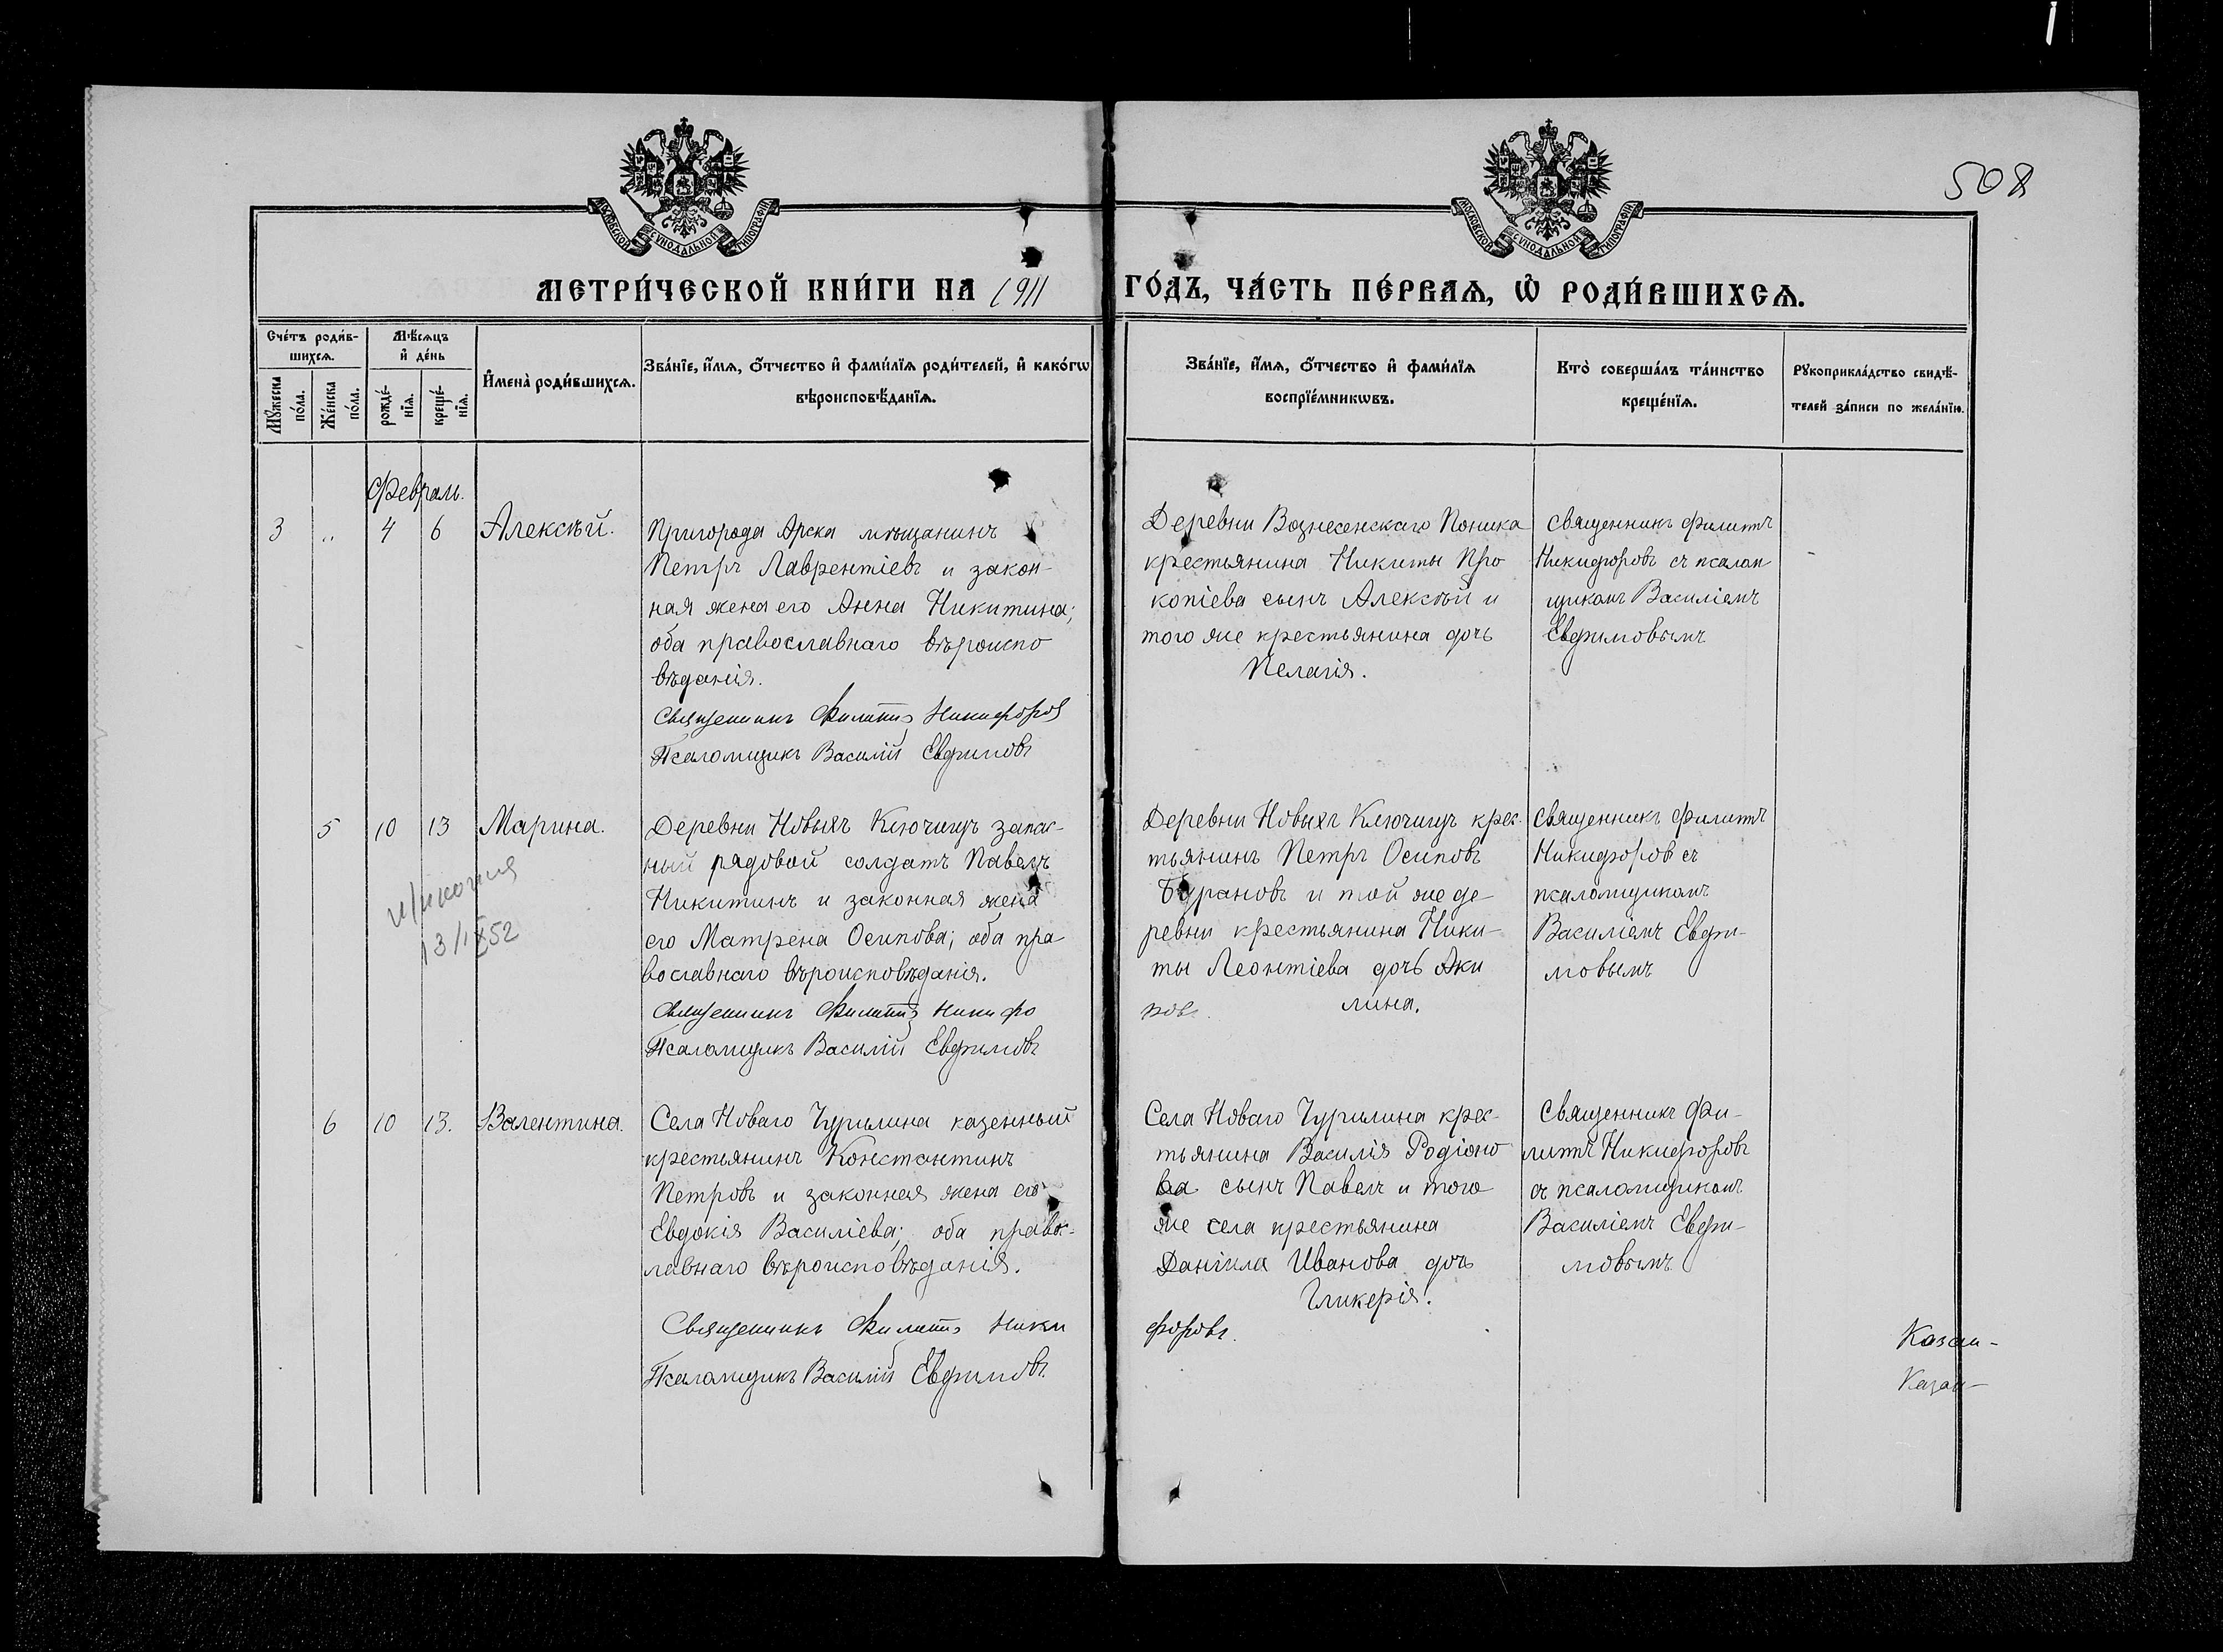 508
МОСКОВСКОЙ СУНОДАЛЬНОЙ ТИПОГРАФІИ
МОСКОВСКОЙ СУНОДАЛЬНОЙ ТИПОГРАФІИ
МЕТРИ́ЧЕСКОЙ КНИ́ГИ НА 1911 ГО́ДЪ, ЧА́СТЬ ПЕ́РВАѦ, Ѡ РОДИ́ВШИХСѦ.
Сче́тъ роди́в-
шихсѧ.
Мꙋ́жеска
по́ла.
Же́нска
по́ла.
Мѣ́сѧцъ
и де́нь
рожде́-
нїѧ.
креще́-
нїѧ.
Имена̀ роди́вшихсѧ.
Зва́нїе, и́мѧ, ѻ́тчество и фами́лїѧ роди́телей, и како́гѡ
вѣроисповѣ́данїѧ.
Зва́нїе, и́мѧ, ѻ́тчество и фами́лїѧ
воспрїе́мникѡвъ.
Кто̀ соверша́лъ та́инство
креще́нїѧ.
Рꙋкоприкла́дство свидѣ́-
телей за́писи по жела́нїю.
Февраль.
3 „ 4 6 Алексѣй.
Пригорода Арска мѣщанинъ
Петръ Лаврентіевъ и закон-
ная жена его Анна Никитина;
оба православнаго вѣроиспо
вѣданія.
Священникъ Филиппъ Никифоров
Псаломщикъ Василій Евфимовъ
Деревни Вознесенскаго Поника
крестьянина Никиты Про
копіева сынъ Алексѣй и
того же крестьянина дочь
Пелагія.
Священникъ Филиппъ
Никифоровъ съ псалом
щикомъ Василіемъ
Евфимовымъ
5 10 13 Марина.
13/IX52
Деревни Новыхъ Ключищъ запас-
ный рядовой солдатъ Павелъ
Никитинъ и законная жена
его Матрена Осипова; оба пра
вославнаго вѣроисповѣданія.
Священникъ Филиппъ Никифо
Псаломщикъ Василій Евфимовъ
Деревни Новыхъ Ключищъ крес-
тьянинъ Петръ Осиповъ
Барановъ и той же де
ревни крестьянина Ники-
ты Леонтіева дочь Аки
лина.
ровъ.
Священникъ Филиппъ
Никифоровъ съ
псаломщикомъ
Василіемъ Евфи-
мовымъ
6 10 13. Валентина.
Села Новаго Чурилина казенный
крестьянинъ Константинъ
Петровъ и законная жена его
Евдокія Василіева; оба правос-
лавнаго вѣроисповѣданія.
Священникъ Филиппъ Ники
Псаломщикъ Василій Евфимовъ.
Села Новаго Чурилина крес-
тьянина Василія Родіоно
ва сынъ Павелъ и того
же села крестьянина
Даніила Иванова дочь
Гликерія.
форовъ.
Священникъ Фи-
липпъ Никифоровъ
съ псаломщикомъ
Василіемъ Евфи-
мовымъ
Казан-
Казан-